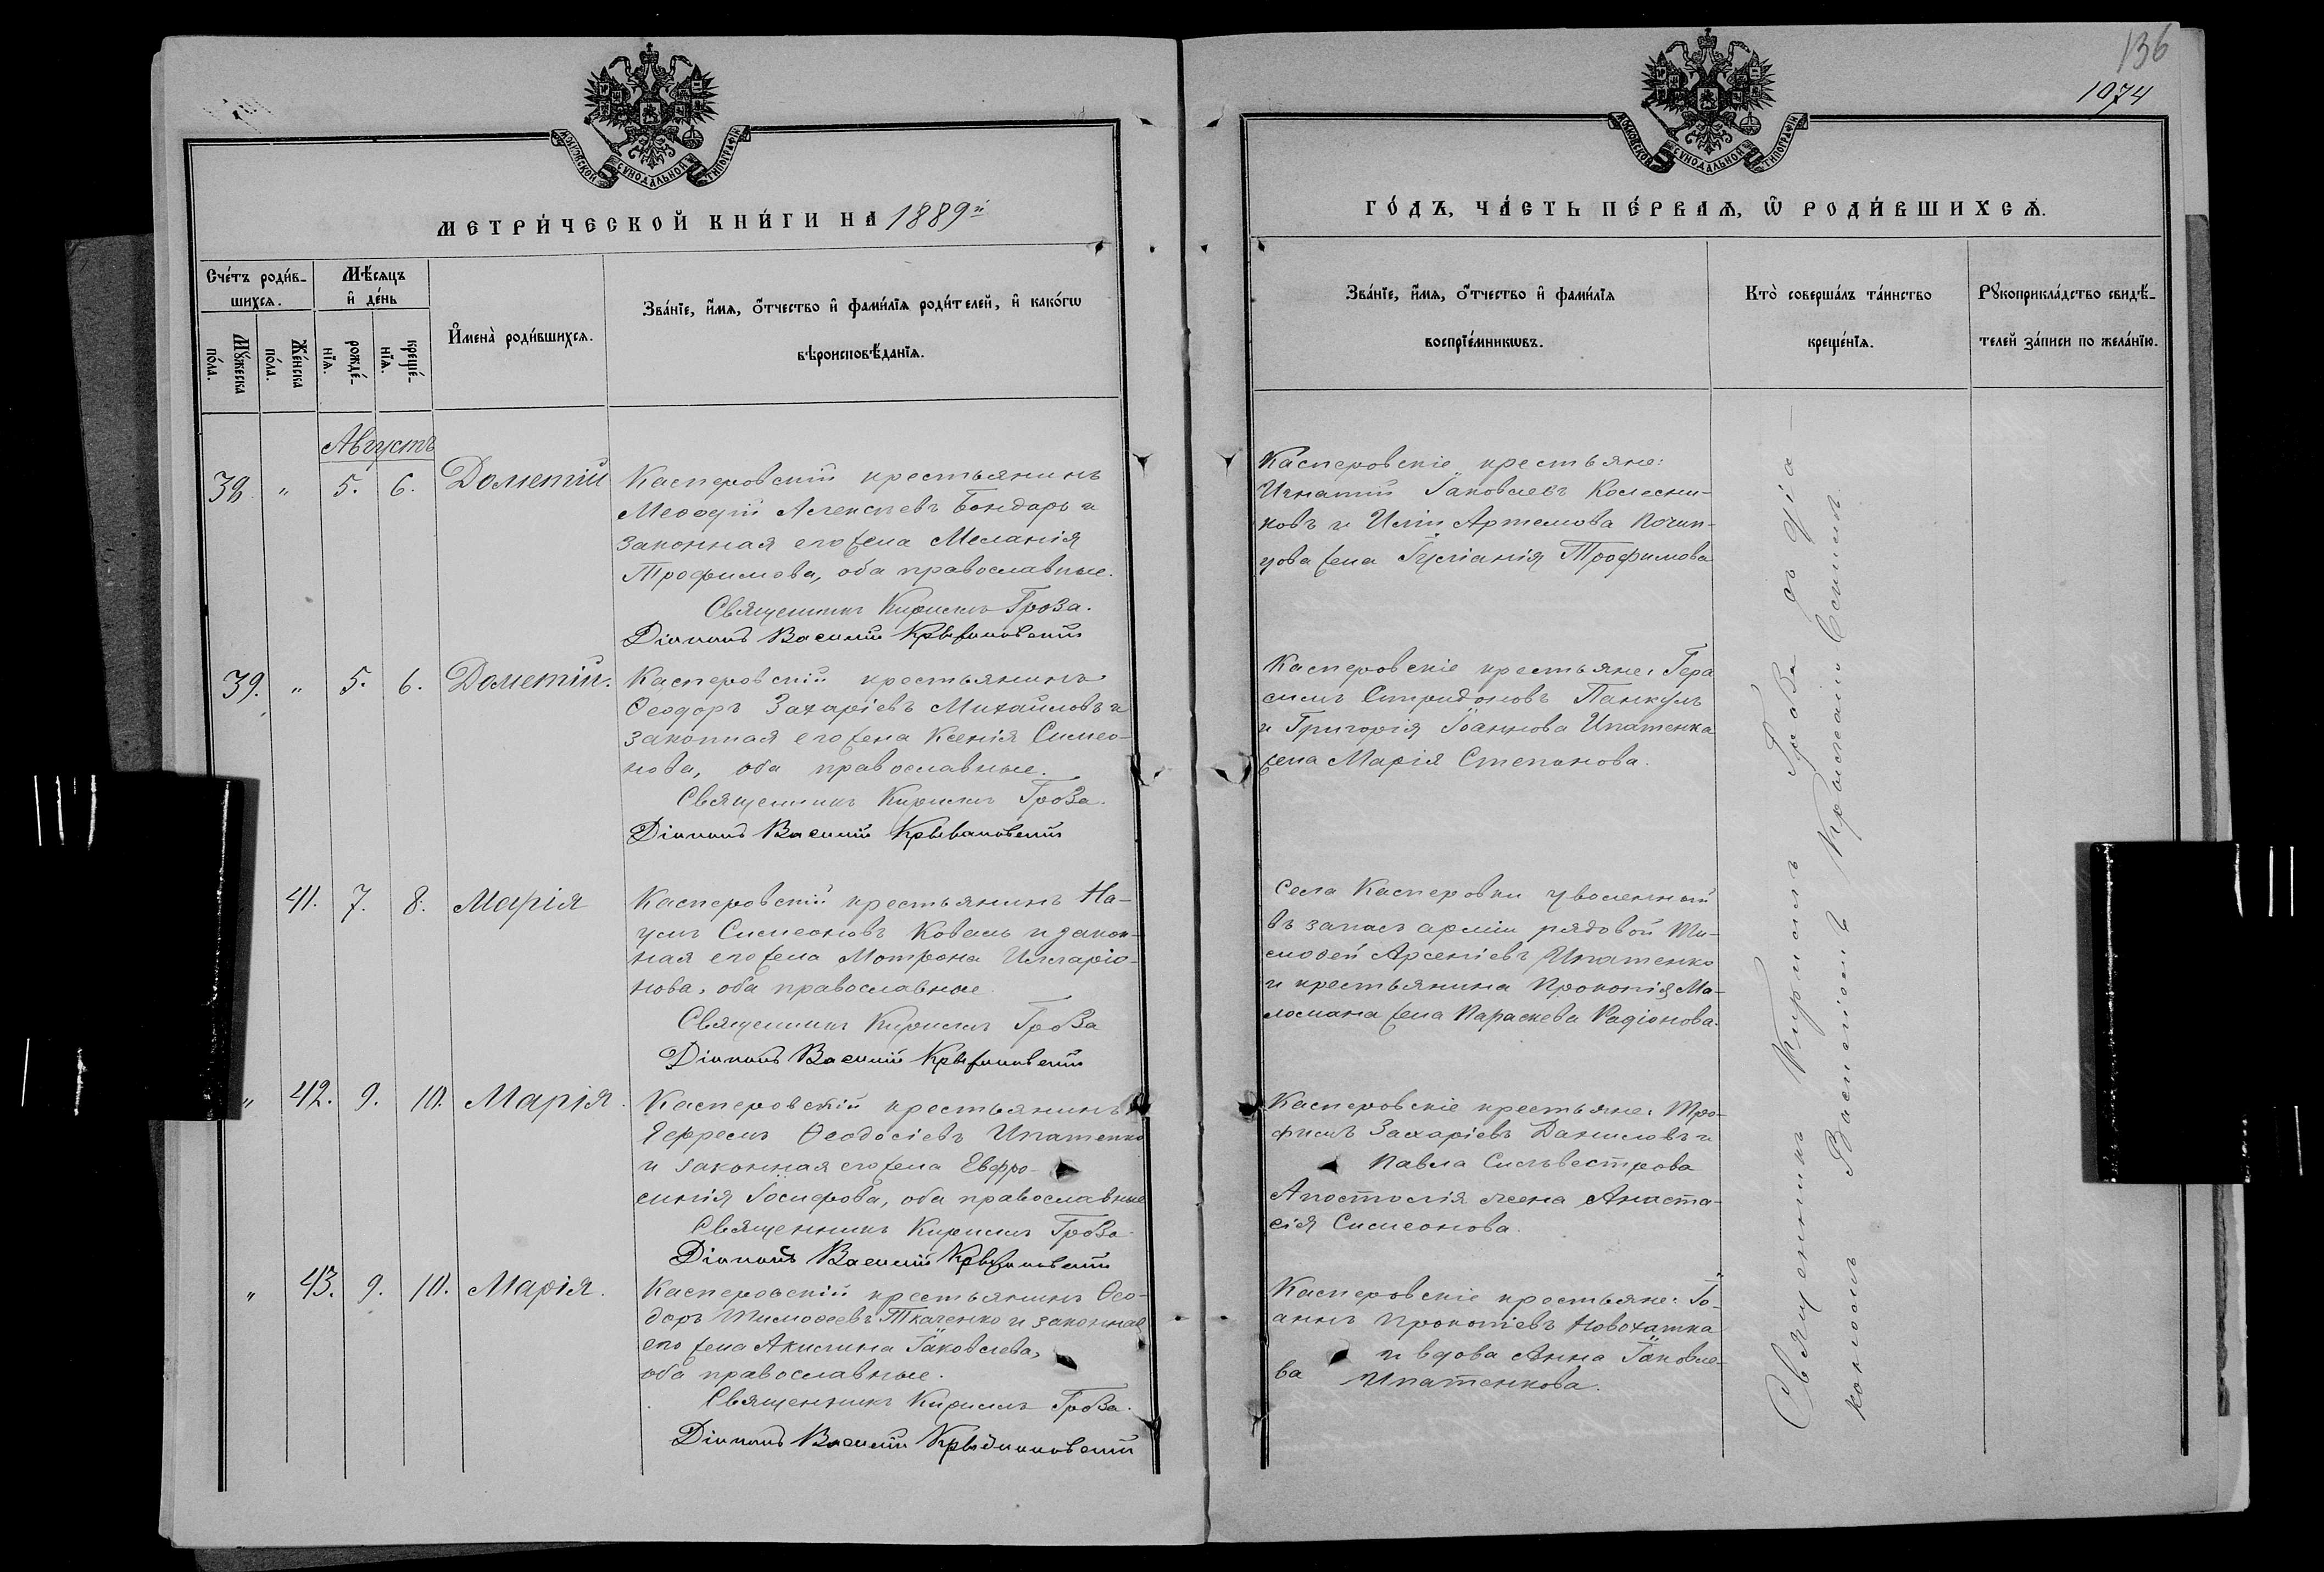 136
1074
МОСКОВСКОЙ СУНОДАЛЬНОЙ ТИПОГРАФІИ
МОСКОВСКОЙ СУНОДАЛЬНОЙ ТИПОГРАФІИ
МЕТРИ́ЧЕСКОЙ КНИ́ГИ НА 1889й
ГО́ДЪ, ЧА́СТЬ ПЕ́РВАѦ, Ѿ РОДИ́ВШИХСѦ.
Сче́тъ роди́в-
шихсѧ.
Мꙋ́жеска
по́ла.
Же́нска
по́ла.
Мѣ́сѧцъ
и҆ де́нь
рожде́-
нїѧ.
креще́-
нїѧ.
И҆мена̀ роди́вшихсѧ.
Зва́нїе, и҆́мѧ, ѻ҆́тчество и҆ фами́лїѧ роди́телей, и҆ како́гѡ
вѣроисповѣ́данїѧ.
Зва́нїе, и҆́мѧ, ѻ҆́тчество и҆ фами́лїѧ
воспрїе́мникѡвъ.
Кто̀ соверша́лъ та́инство
креще́нїѧ.
Рꙋкоприкла́дство свидѣ́-
телей за́писи по жела́нїю.
Августъ
38. " 5. 6. Дометій
Касперовскій крестьянинъ
Меѳодій Алексѣевъ Бондарь и
законная его жена Меланія
Трофимова, оба православные.
Священникъ Кириллъ Гроза.
Діаконъ Василій Крыжановскій
Касперовскіе крестьяне:
Игнатій Іаковлевъ Колесни-
ковъ и Иліи Артемова Почип-
цова жена Іуліанія Трофимова
39. " 5. 6. Дометій.
Касперовскій крестьянинъ
Ѳеодоръ Захаріевъ Михайловъ и
законная его жена Ксенія Симео-
нова, оба православные.
Священникъ Кириллъ Гроза.
Діаконъ Василій Крыжановскій
Касперовскіе крестьяне: Гера
симъ Спиридоновъ Панкулъ
и Григорія Іоаннова Ипатенка
жена Марія Степанова.
41. 7. 8. Марія
Касперовскій крестьянинъ На-
умъ Симеоновъ Коваль и закон-
ная его жена Мотрона Илларіо-
нова, оба православные
Священникъ Кириллъ Гроза
Діаконъ Василій Крыжановскій
Села Касперовки уволенный
въ запасъ арміи рядовой Ти-
моѳей Арсеніевъ Ипатенко
и крестьянина Прокопія Ма-
ломана жена Параскева Радіонова.
" 42. 9. 10. Марія.
Касперовскій крестьянинъ
Ефремъ Ѳеодосіевъ Ипатенко
и законная его жена Евфро-
синія Іосифова, оба православные
Священникъ Кириллъ Гроза
Діаконъ Василій Крыжановскій
Касперовскіе крестьяне: Тро-
фимъ Захаріевъ Даниловъ и
Павла Сильвестрова
Апостолія жена Анаста-
сія Симеонова.
" 43. 9. 10. Марія.
Касперовскій крестьянинъ Ѳео-
доръ Тимоѳеевъ Ткаченко и законная
его жена Акилина Іаковлева,
оба православные.
Священникъ Кириллъ Гроза.
Діаконъ Василій Крыжановскій
Касперовскіе крестьяне: Іо-
аннъ Прокопіевъ Новохатка
и вдова Анна Іаковле-
ва Ипатенкова.
Священникъ Кириллъ Гроза съ діа-
кономъ Василіемъ